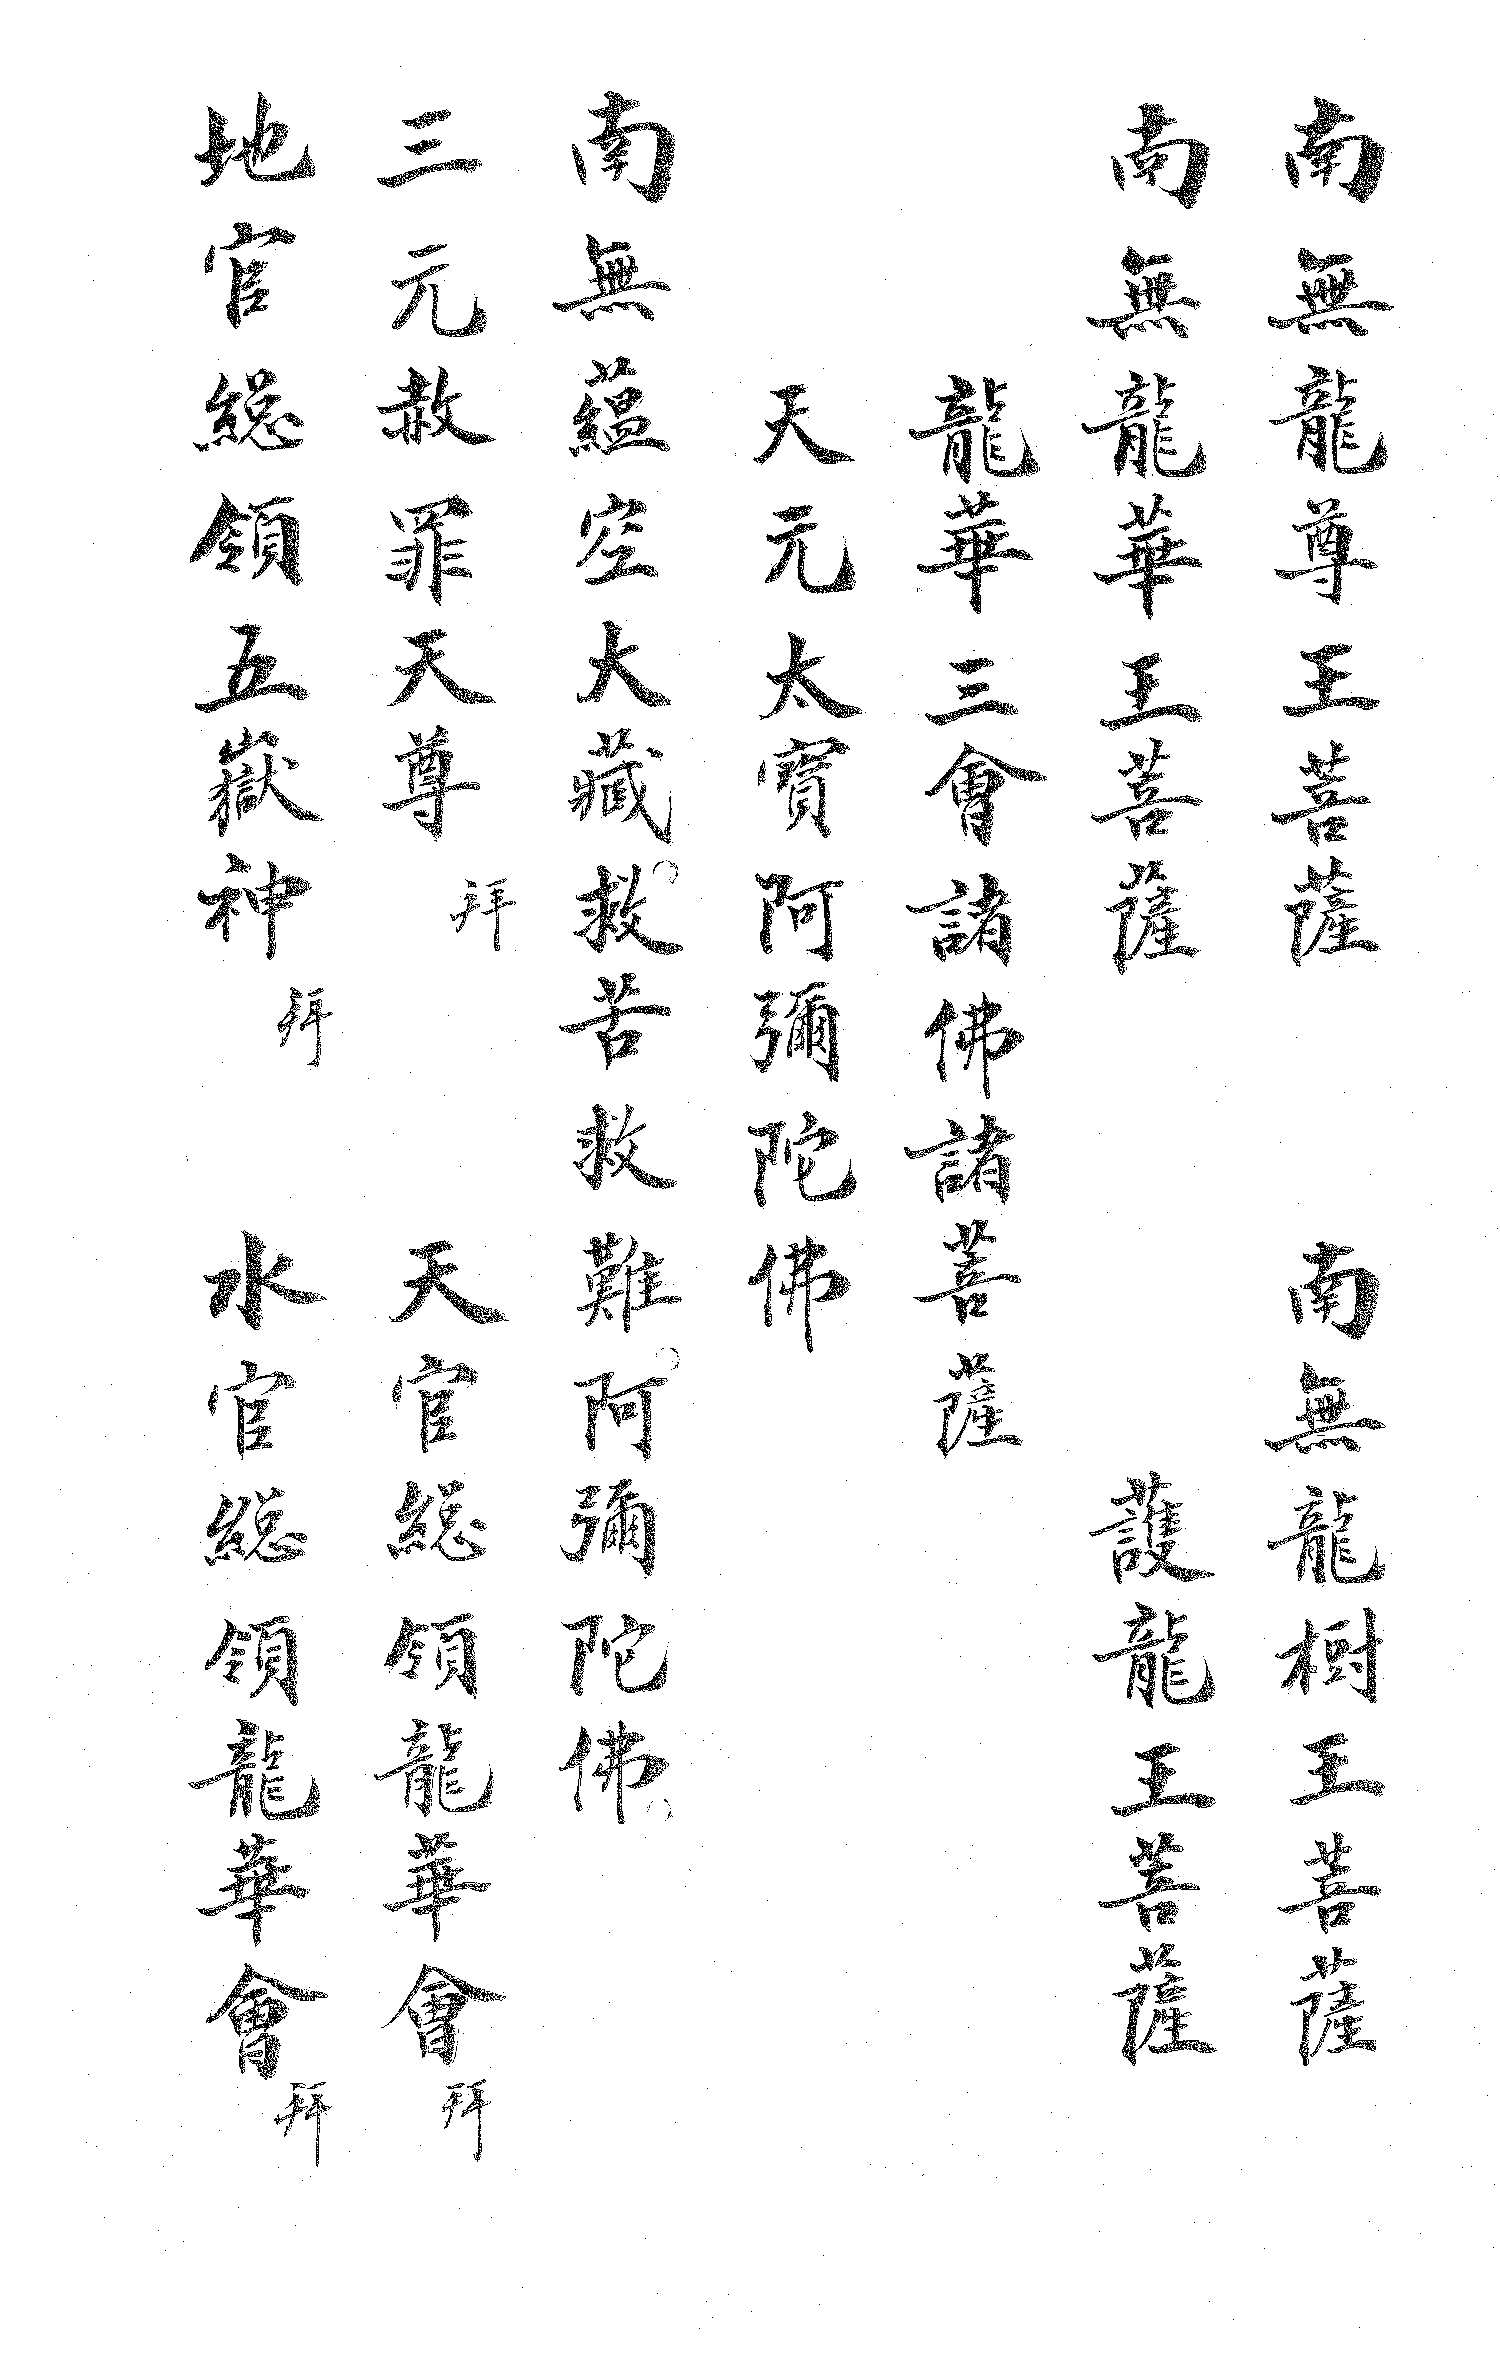 南無龍尊王菩薩　南無龍樹王菩薩
南無龍華王菩薩　護龍王菩薩
龍華三會諸佛諸菩薩
天元太寶阿彌陀佛
南無蘊空大藏。救苦救難。阿彌陀佛。
三元赦罪天尊 拜　天官総領龍華會 拜
地官総領五嶽神 拜　水官総領龍華會 拜